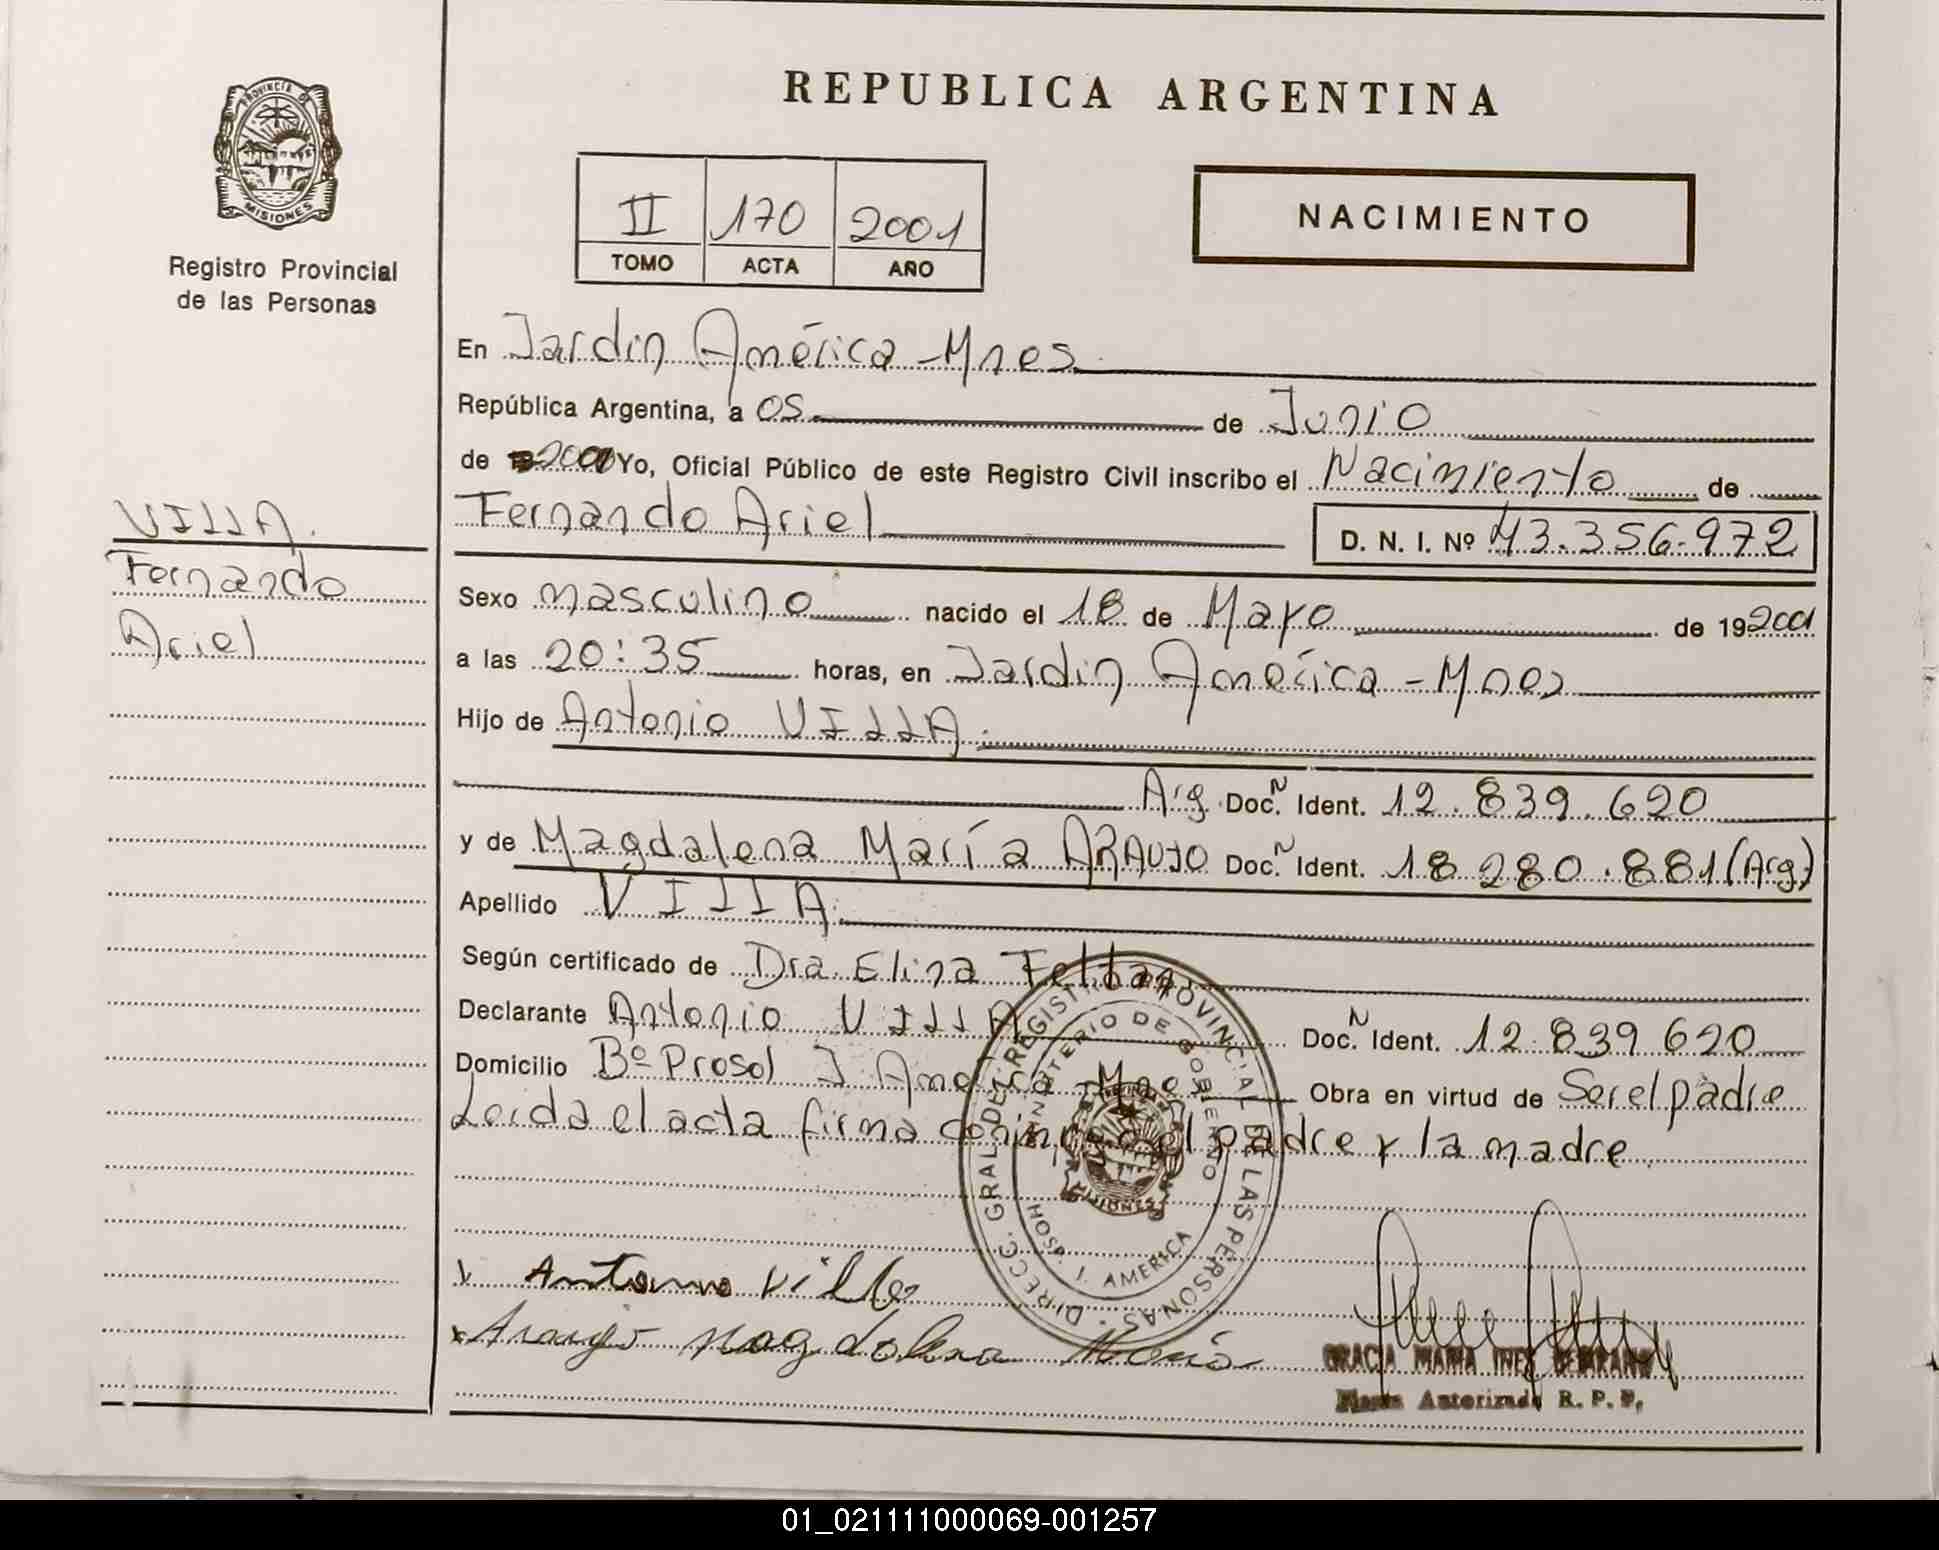 REPUBLICA ARGENTINA
PROVINCIA DE
MISIONES
Registro Provincial
de las Personas
II 170 2001
TOMO ACTA AÑO
NACIMIENTO
En Jardin América - Mnes.
República Argentina, a 05 de Junio
de 2001 Yo, Oficial Público de este Registro Civil inscribo el Nacimiento de
Fernando Ariel D. N. I. Nº 43.356.972
VILLA.
Fernando
Ariel
Sexo masculino nacido el 18 de Mayo de 19 2001
a las 20:35 horas, en Jardin América - Mnes
Hijo de Antonio VILLA.
Arg. Doc. N Ident. 12.839.620
y de Magdalena María ARAUJO Doc. N Ident. 18 280.881 (Arg)
Apellido VILLA.
Según certificado de Dra. Elina
Declarante Antonio VILLA Doc. N Ident. 12.839 620
Domicilio Bº Prosol J America - Mnes Obra en virtud de Ser el padre
Leida el acta firma conmigo el padre y la madre.
DIRECC. GRAL. DEL REGISTRO PROVINCIAL DE LAS PERSONAS -
MINISTERIO DE GOBIERNO
MISIONES
HOSP. J. AMERICA
Antonio Villa
x Araujo Magdalena Maria
GRACIA MARIA INES
Firma Autorizada R. P. P.
01_021111000069-001257